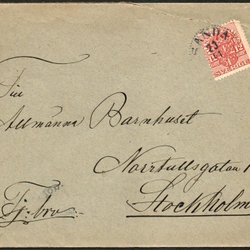 Till
Allmänna Barnhuset
Norrtullsgatan 1
Stockholm
Tj. bru